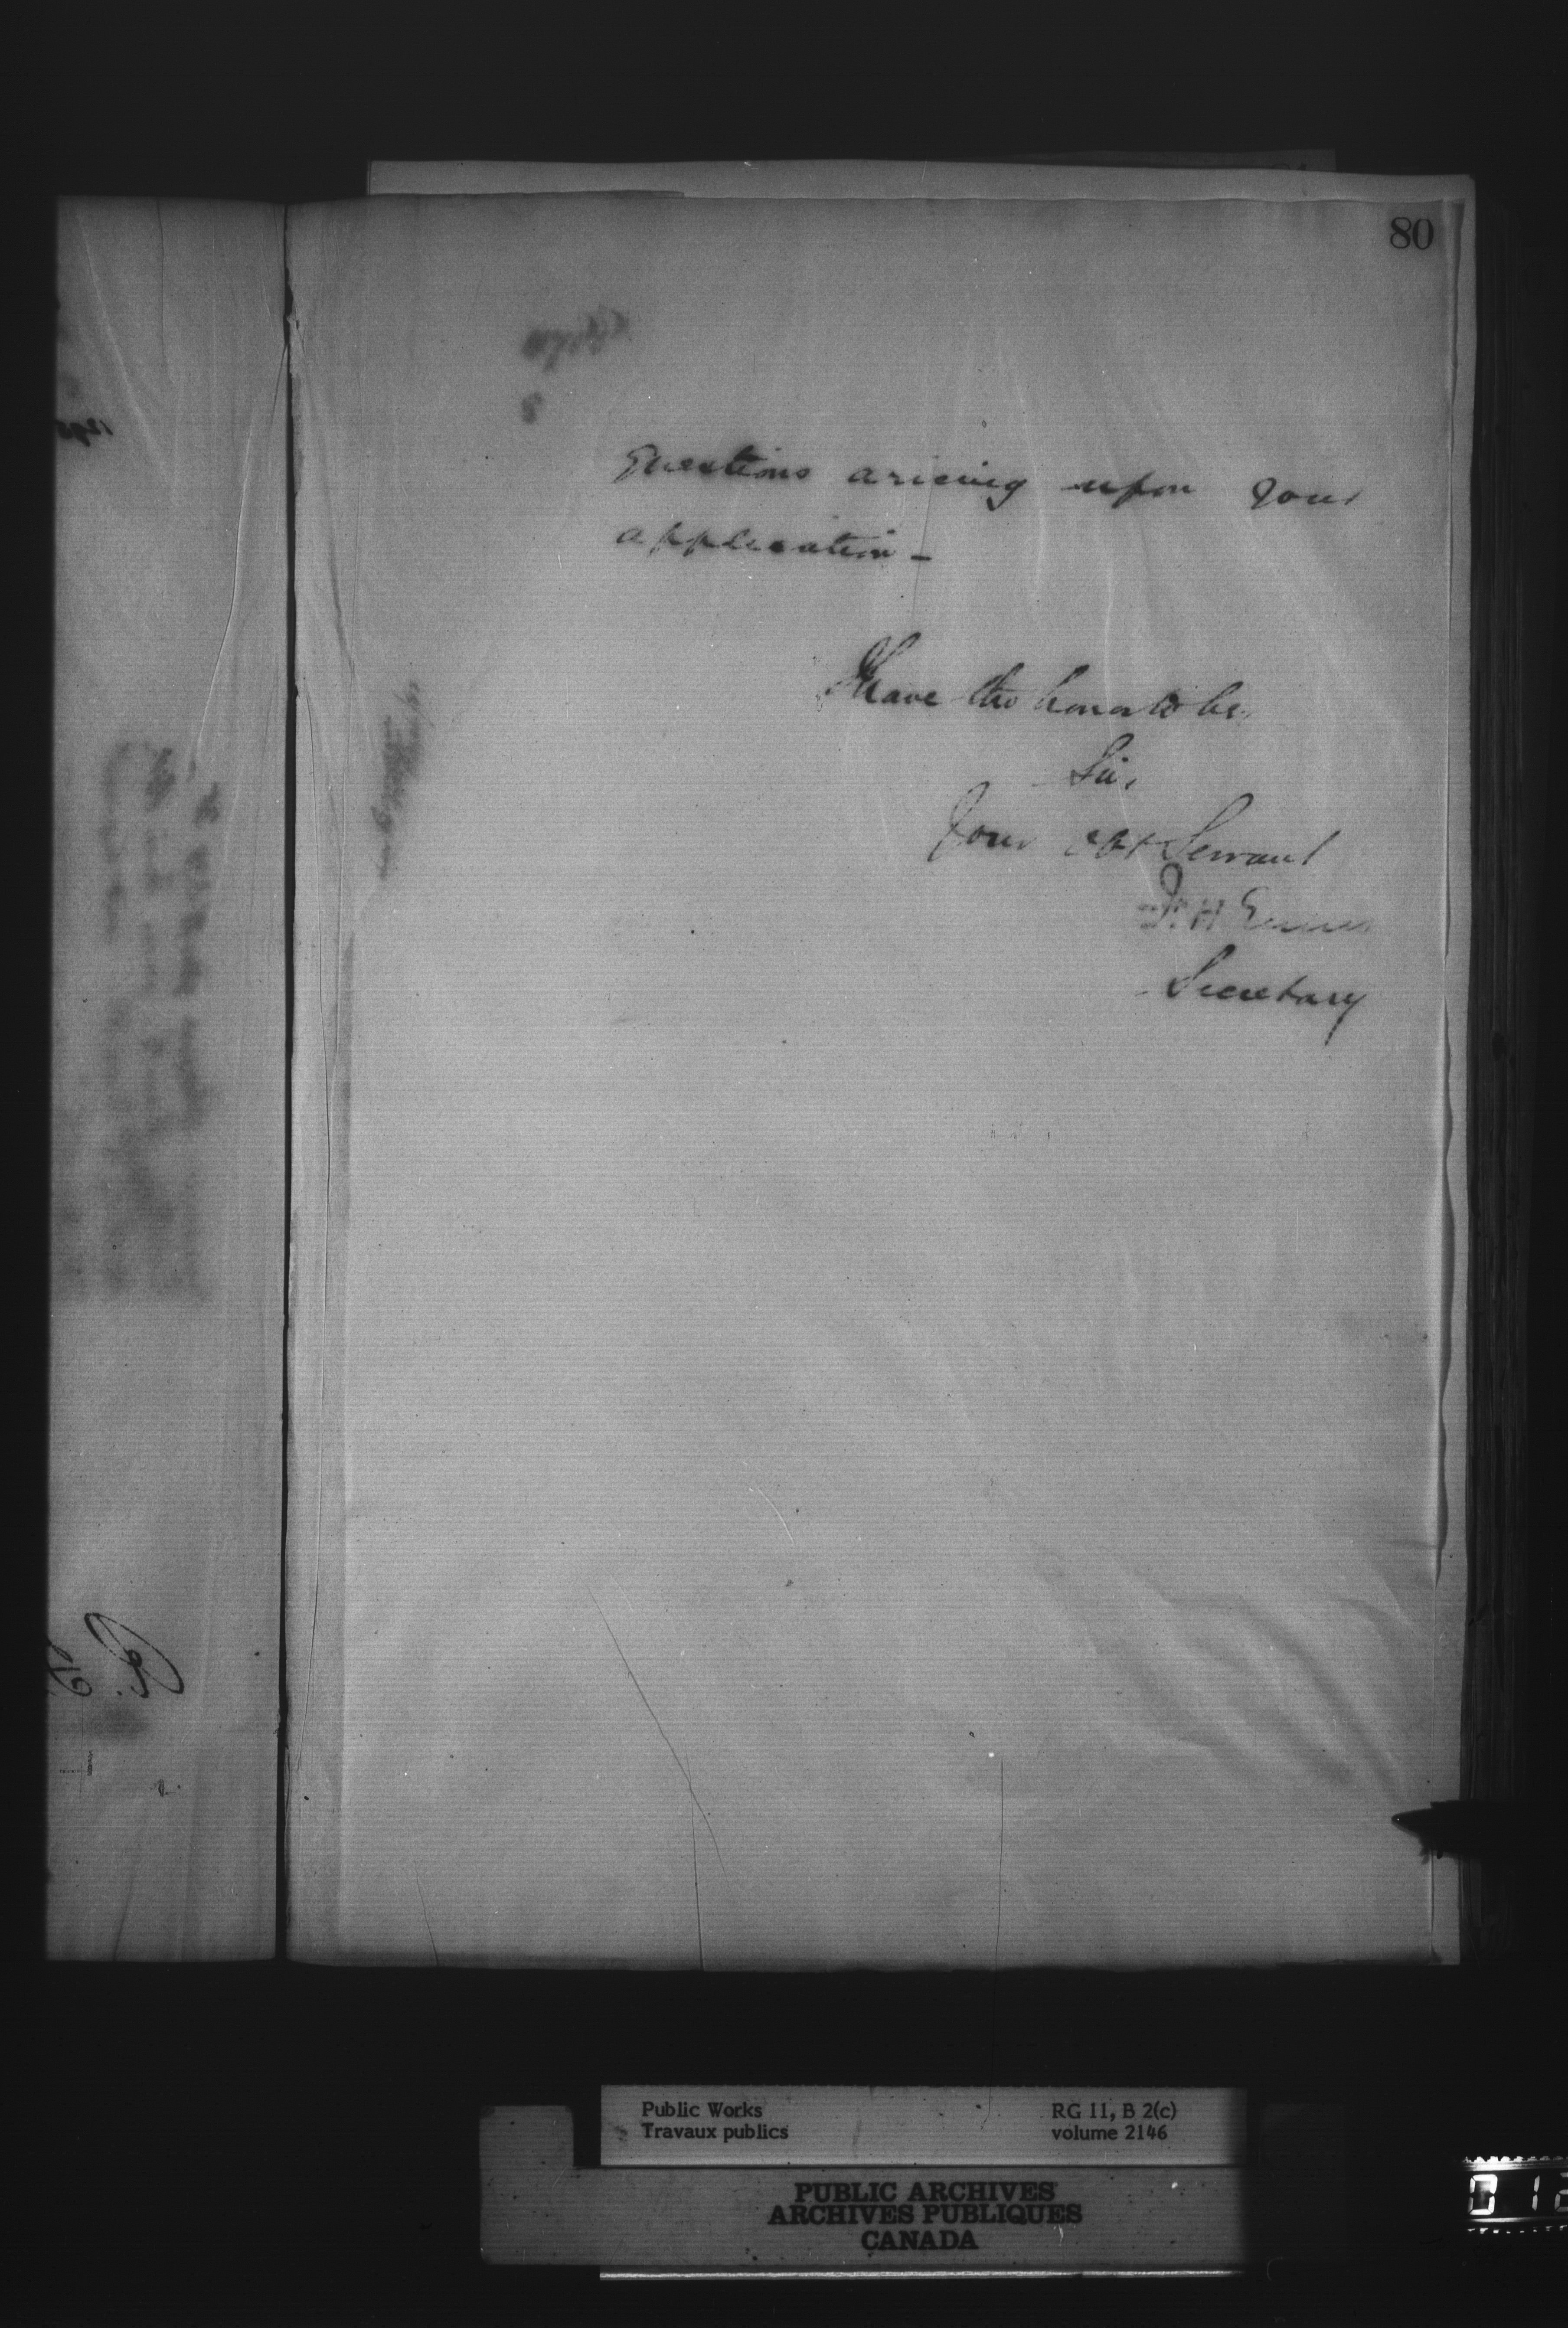 80
Questions arising upon your
application -
I have the honor to be
Sir,
Your obt Servant
F. H. Ennis
Secretary
Public Works
Travaux publics
RG 11, B 2(c)
volume 2146
PUBLIC ARCHIVES
ARCHIVES PUBLIQUES
CANADA
012